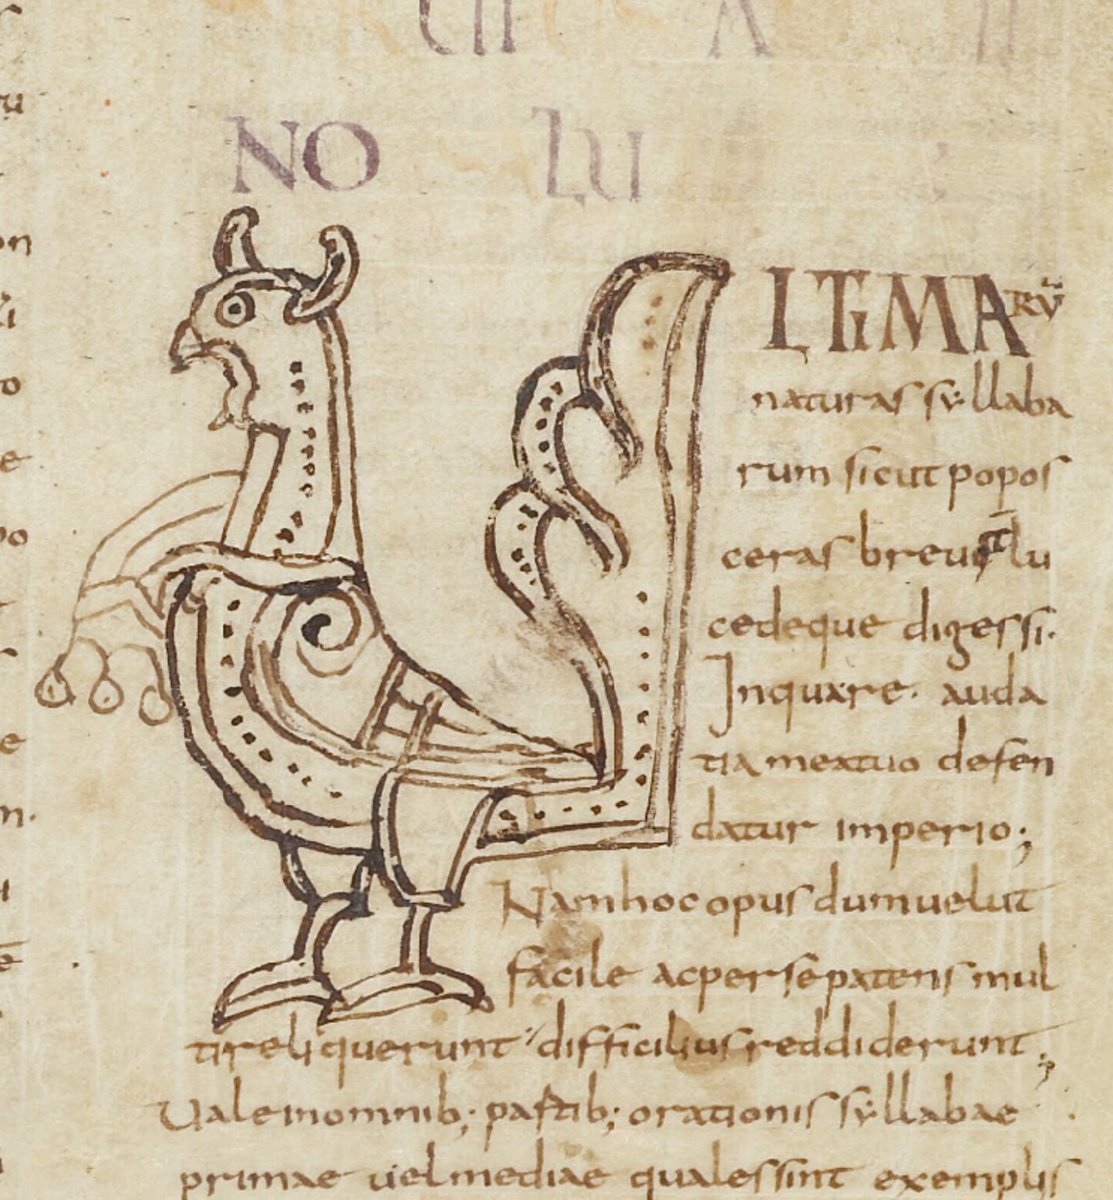 NO LU
LTIMARŪ
naturas syllaba
rum sicut popos
ceras breui lu
cedeque digessi.
Inquare. auda
tia mextuo defen
datur imperio;
Nam hoc opus dum uelut
facile ac per se patens mul
ti reliquerunt difficilius reddiderunt;
Uale in omnib; partib; orationis syllabae
primae uel mediae quales sint exemplis